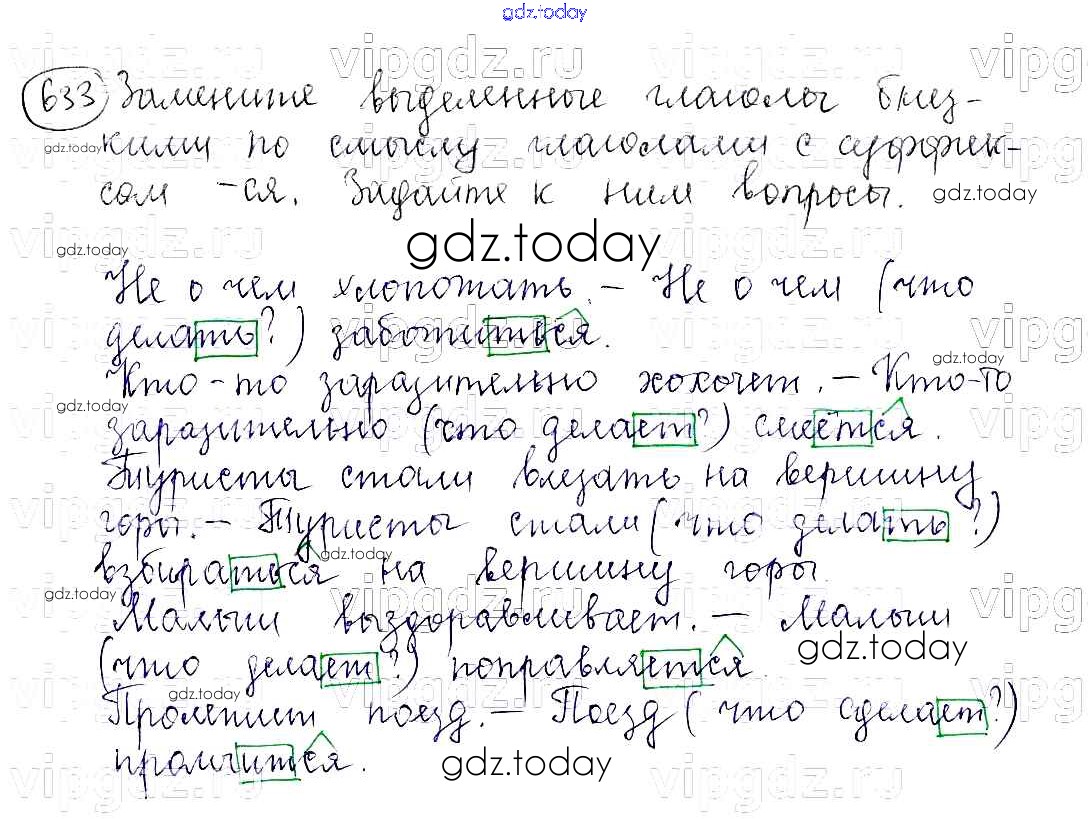 gdz.today
633 Замените выделенные глаголы близ-
кими по смыслу глаголами с суффик-
сом -ся. Задайте к ним вопросы.
Не о чем хлопотать. - Не о чем (что
делать?) заботиться.
Кто-то заразительно хохочет. - Кто-то
заразительно (что делает?) смеётся.
Туристы стали влезать на вершину
горы. - Туристы стали (что делать?)
взбираться на вершину горы.
Малыш выздоравливает. - Малыш
(что делает?) поправляется.
Пролетит поезд. - Поезд (что сделает?)
промчится.
gdz.today
vipgdz.ru